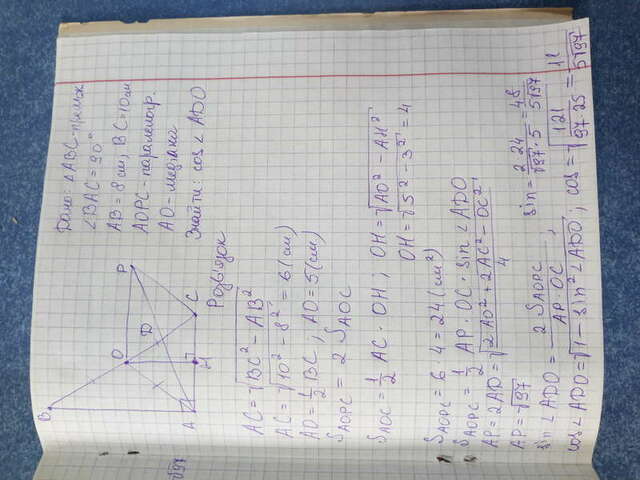 Дано: △ABC-прямок
∠BAC=90°
AB=8см, BC=10см
AOPC-паралелогр.
AO-медіана
Знайти: cos∠ADO
B
O
P
D
A
H
C
Розв'язок
AC=√(BC²-AB²)
AC=√(10²-8²)=6(см)
AO=1/2 BC; AO=5(см)
S_AOPC = 2 S_AOC
S_AOC = 1/2 AC·OH; OH=√(AO²-AH²)
OH=√(5²-3²)=4
S_AOPC=6·4=24(см²)
S_AOPC=1/2 AP·OC·sin∠ADO
AP=2AD=√((2AO²+2AC²-OC²)/4)
AP=√97
sin∠ADO=2S_AOPC/(AP·OC); sin=2·24/(√97·5)=48/(5√97)
cos∠ADO=√(1-sin²∠ADO); cos=√(121/(97·25))=11/(5√97)
√97